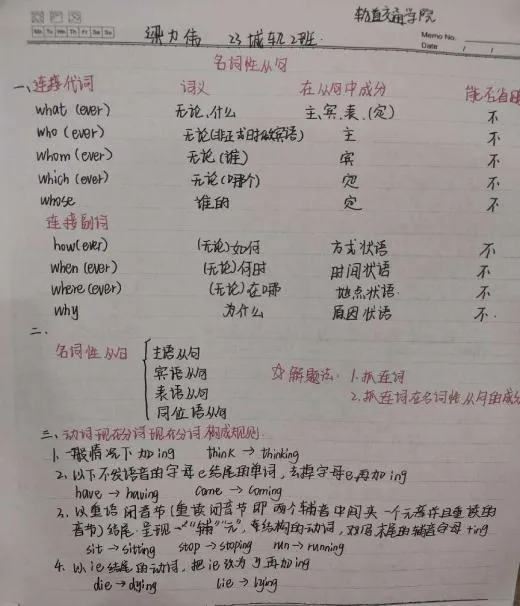 轨道交通学院
Mo Tu We Th Fr Sa Su
梁力伟 23城轨2班
Memo No.
Date / /
名词性从句
一、连接代词 词义 在从句中成分 能否省略
what (ever) 无论,什么 主、宾、表、(定) 不
who (ever) 无论(非正式时做宾语) 主 不
whom (ever) 无论(谁) 宾 不
which (ever) 无论(哪个) 定 不
whose 谁的 定 不
连接副词
how(ever) (无论)如何 方式状语 不
when (ever) (无论)何时 时间状语 不
where (ever) (无论)在哪 地点状语 不
why 为什么 原因状语 不
二、
名词性从句 主语从句
宾语从句 ☆解题法: 1.抓连词
表语从句 2.抓连词在名词性从句的成分
同位语从句
三、动词现在分词现在分词构成规则
1、一般情况下加ing think → thinking
2、以不发语音的字母e结尾的单词,去掉字母e再加ing
have → having come → coming
3、以重语闭音节(重读闭音节即两个辅音中间夹一个元音并且重读的
音节)结尾.呈现"辅""元",结构的动词,双写末尾的辅音字母+ing
sit → sitting stop → stoping run → running
4、以ie结尾的动词,把ie改为y再加ing
die → dying lie → lying